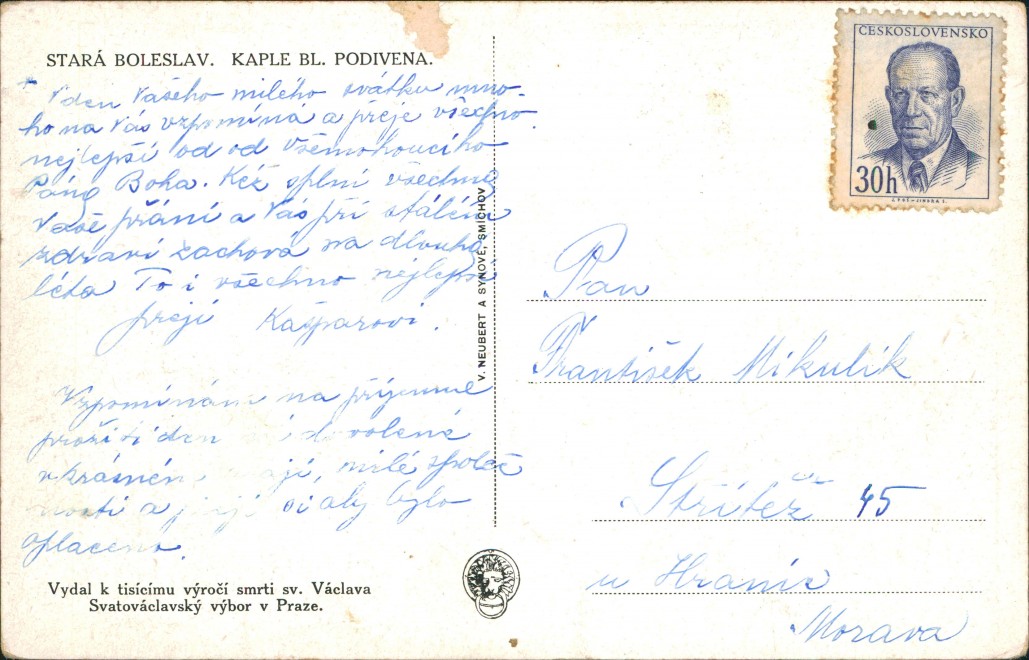 STARÁ BOLESLAV. KAPLE BL. PODIVENA.
V den Vašeho milého svátku mno-
ho na Vás vzpomíná a přeje všechno
nejlepší od od Všemohoucího
Pána Boha. Kéž splní všechna
Vaše přání a Vás při stálém
zdraví zachová na dlouhá
léta To i všechno nejlepší
přejí Kašparovi.
Vzpomínám na příjemně
prožité dovolené
v krásném milé společ
nosti a aby bylo
oplaceno.
Vydal k tisícímu výročí smrti sv. Václava
Svatováclavský výbor v Praze.
V. NEUBERT A SYNOVÉ, SMÍCHOV
ČESKOSLOVENSKO
30h
Pan
František Mikulik
Střítěž 45
u Hranic
Morava